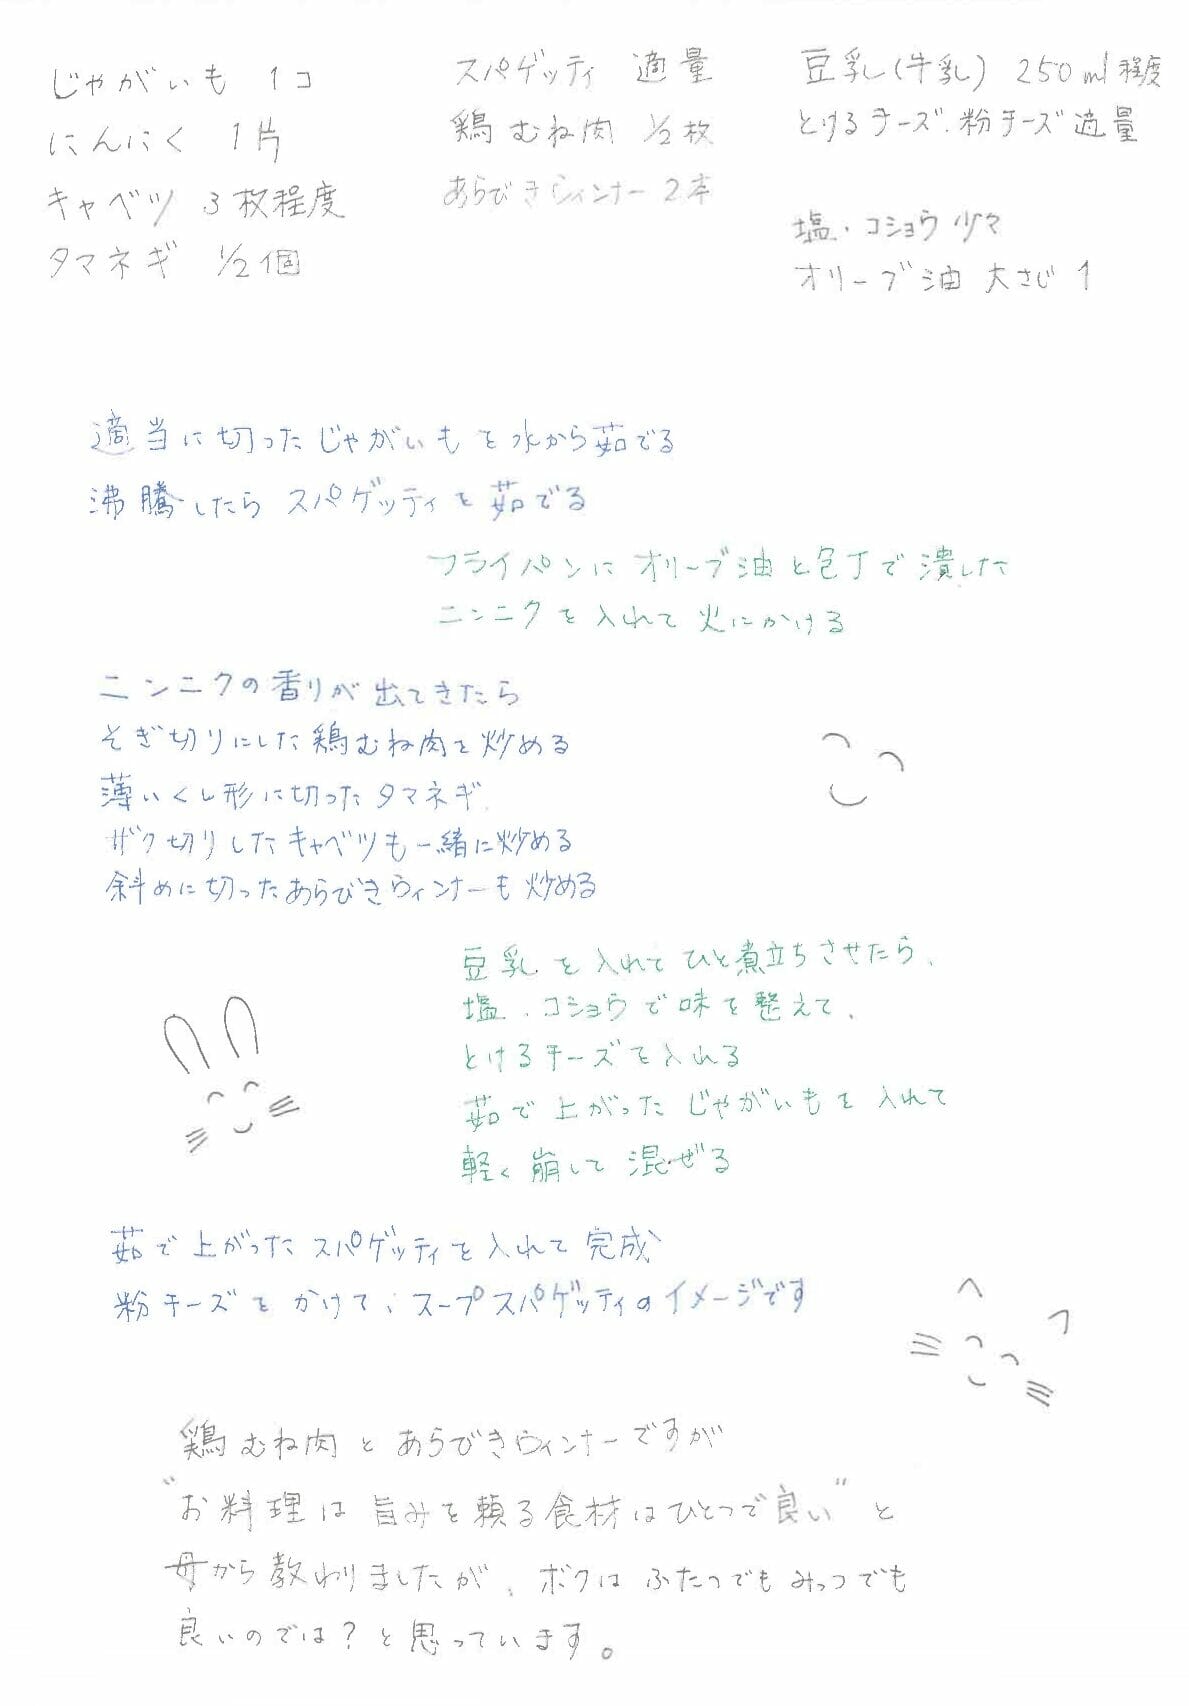 じゃがいも 1コ
にんにく 1片
キャベツ 3枚程度
タマネギ 1/2個
スパゲッティ 適量
鶏むね肉 1/2枚
あらびきウィンナー 2本
豆乳(牛乳) 250ml程度
とけるチーズ、粉チーズ適量
塩・コショウ少々
オリーブ油 大さじ1
適当に切ったじゃがいもを水から茹でる
沸騰したらスパゲッティを茹でる
フライパンにオリーブ油と包丁で潰した
ニンニクを入れて火にかける
ニンニクの香りが出てきたら
そぎ切りにした鶏むね肉を炒める
薄いくし形に切ったタマネギ、
ザク切りしたキャベツも一緒に炒める
斜めに切ったあらびきウィンナーも炒める
豆乳を入れてひと煮立ちさせたら、
塩、コショウで味を整えて、
とけるチーズを入れる
茹で上がったじゃがいもを入れて
軽く崩して混ぜる
茹で上がったスパゲッティを入れて完成
粉チーズをかけて、スープスパゲッティのイメージです
鶏むね肉とあらびきウィンナーですが
"お料理は旨みを頼る食材はひとつで良い"と
母から教わりましたが、ボクはふたつでもみっつでも
良いのでは?と思っています。